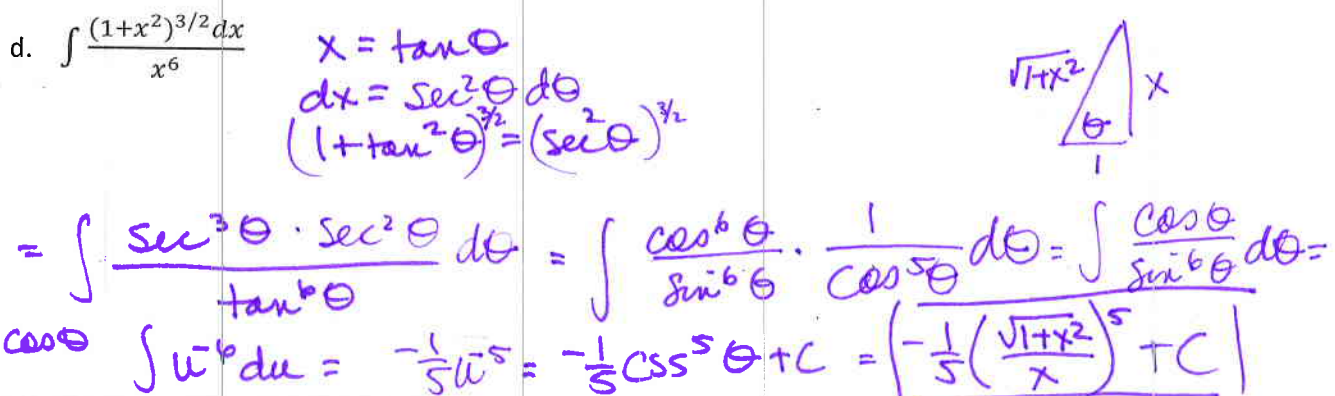 d. ∫ (1+x²)^3/2 dx / x⁶
x = tanθ
dx = sec²θ dθ
(1+tan²θ)^3/2 = (sec²θ)^3/2
√1+x² x
θ
1
= ∫ sec³θ · sec²θ / tan⁶θ dθ = ∫ cos⁶θ / sin⁶θ · 1 / cos⁵θ dθ = ∫ cosθ / sin⁶θ dθ =
cosθ ∫ u⁻⁶ du = -1/5 u⁻⁵ = -1/5 css⁵θ + C = -1/5 (√1+x² / x)⁵ + C